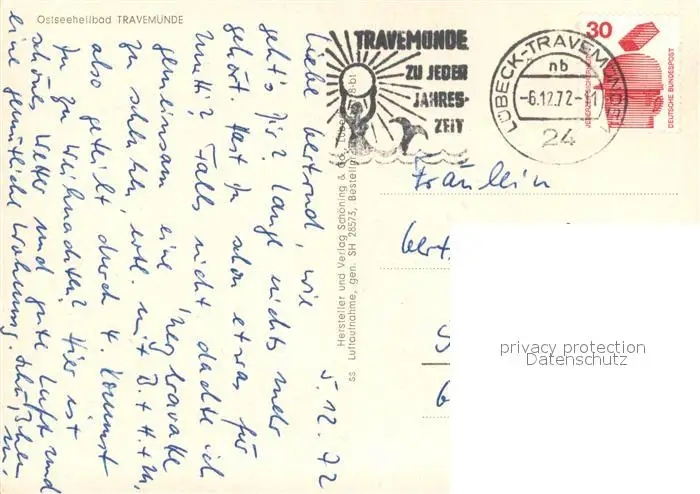 Ostseeheilbad TRAVEMÜNDE
TRAVEMÜNDE
ZU JEDER
JAHRES-
ZEIT
LÜBECK-TRAVEMÜNDE
nb
-6.12.72
24
30
DEUTSCHE BUNDESPOST
Hersteller und Verlag Schöning & Co., Lübeck
SS Luftaufnahme, gen. SH 28573, Bestellnr.
5.12.72
Liebe wie
geht's Dir? Lange nichts mehr
gehört. Hast Du schon etwas für
Mutti? Falls nicht, dachte ich
gemeinsam eine
zu schenken, evtl. mit B. + H. + M.,
also geteilt durch 4. Kommst
Du zu Weihnachten? Hier ist
schönes Wetter und gute Luft und
eine gemütliche Wohnung.
Fräulein
privacy protection
Datenschutz